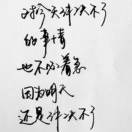 今天解决不了
的事情
也不必着急
因为明天
还是解决不了